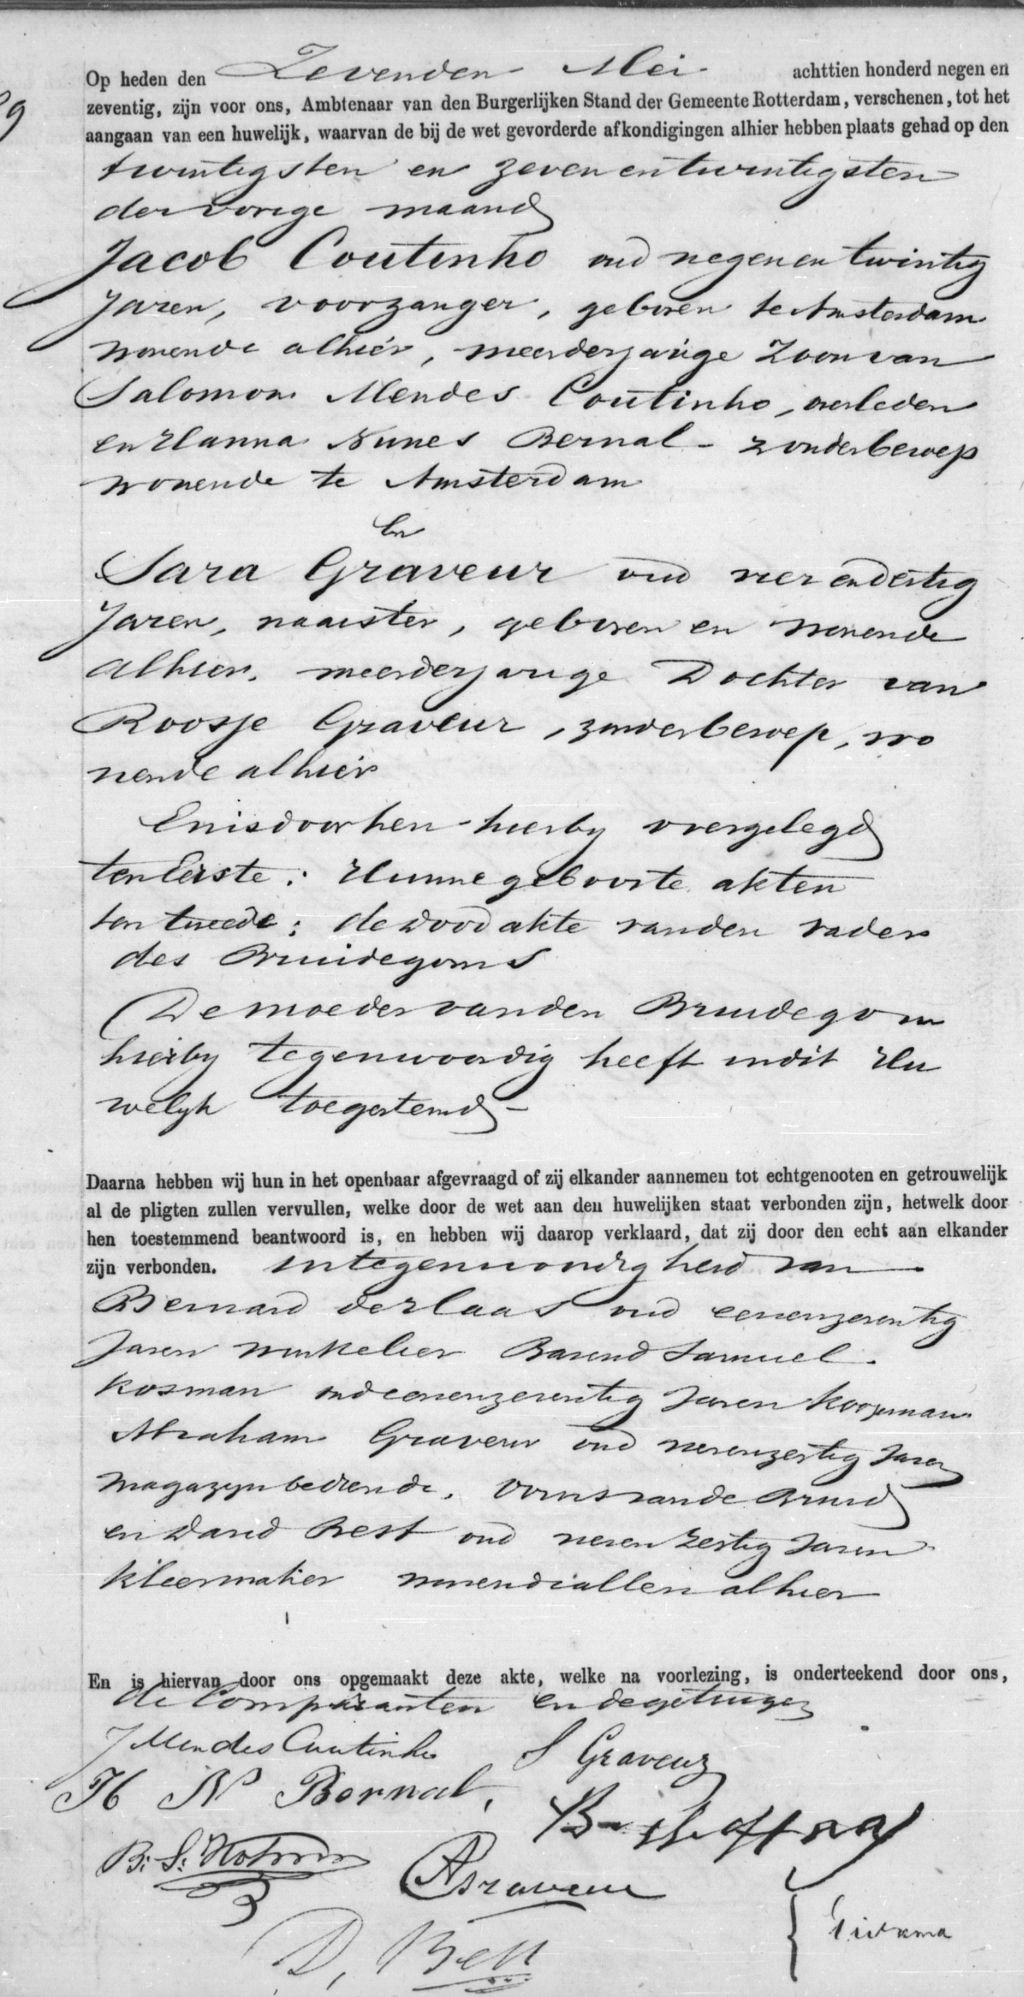 Op heden den Zevenden Mei achttien honderd negen en
zeventig, zijn voor ons, Ambtenaar van den Burgerlijken Stand der Gemeente Rotterdam, verschenen, tot het
aangaan van een huwelijk, waarvan de bij de wet gevorderde afkondigingen alhier hebben plaats gehad op den
twintigsten en zevenentwintigsten
der vorige maand
Jacob Coutinho oud negenentwintig
Jaren, voorzanger, geboren te Amsterdam
wonende alhier, meerderjarige Zoon van
Salomon Mendes Coutinho, overleden
en Hanna Nunes Bernal - zonder beroep
wonende te Amsterdam
En
Sara Graveur oud vier endertig
Jaren, naaister, geboren en wonende
alhier, meerderjarige Dochter van
Roosje Graveur, zonder beroep, wo
nende alhier
En is door hen hierby overgelegd
ten Eerste: Hunne geboorte akten
ten tweede: de dood akte van den vader
des Bruidegoms
De moeder van den Bruidegom
hierby tegenwoordig heeft in dit Hu
welyk toegestemd -
Daarna hebben wij hun in het openbaar afgevraagd of zij elkander aannemen tot echtgenooten en getrouwelijk
al de pligten zullen vervullen, welke door de wet aan den huwelijken staat verbonden zijn, hetwelk door
hen toestemmend beantwoord is, en hebben wij daarop verklaard, dat zij door den echt aan elkander
zijn verbonden. in tegenwoordigheid van
Bernard oud eenenzeventig
Jaren winkelier Barend Samuel
Kosman oud eenenzeventig Jaren Koopman
Abraham Graveur oud vierenzestig Jaren
magazynbediende, Oom van de Bruid
en David Best oud zestig Jaren
Kleermaker wonende allen alhier
En is hiervan door ons opgemaakt deze akte, welke na voorlezing, is onderteekend door ons,
de Comparanten en de getuigen
J Mendes Coutinho S Graveur
H N Bernal,
B: S: Kosman A Graveur
D, Best